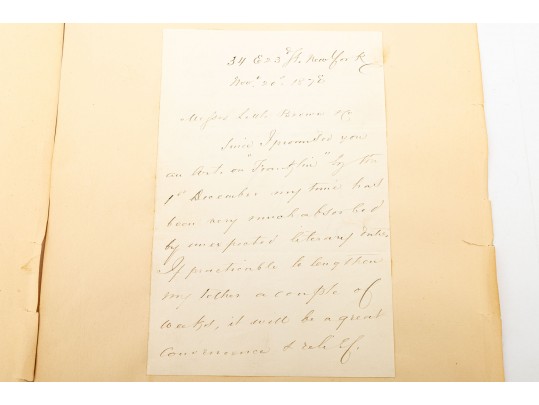 34 E 23d St. New York
Nov. 20. 1878
Messrs Little Brown &c
Since I promised you
an Artc. on "Franklin" by the
1st December my time has
been very much absorbed
by unexpected literary
If practicable to lengthen
my tether a couple of
weeks, it will be a great
convenience & relief.